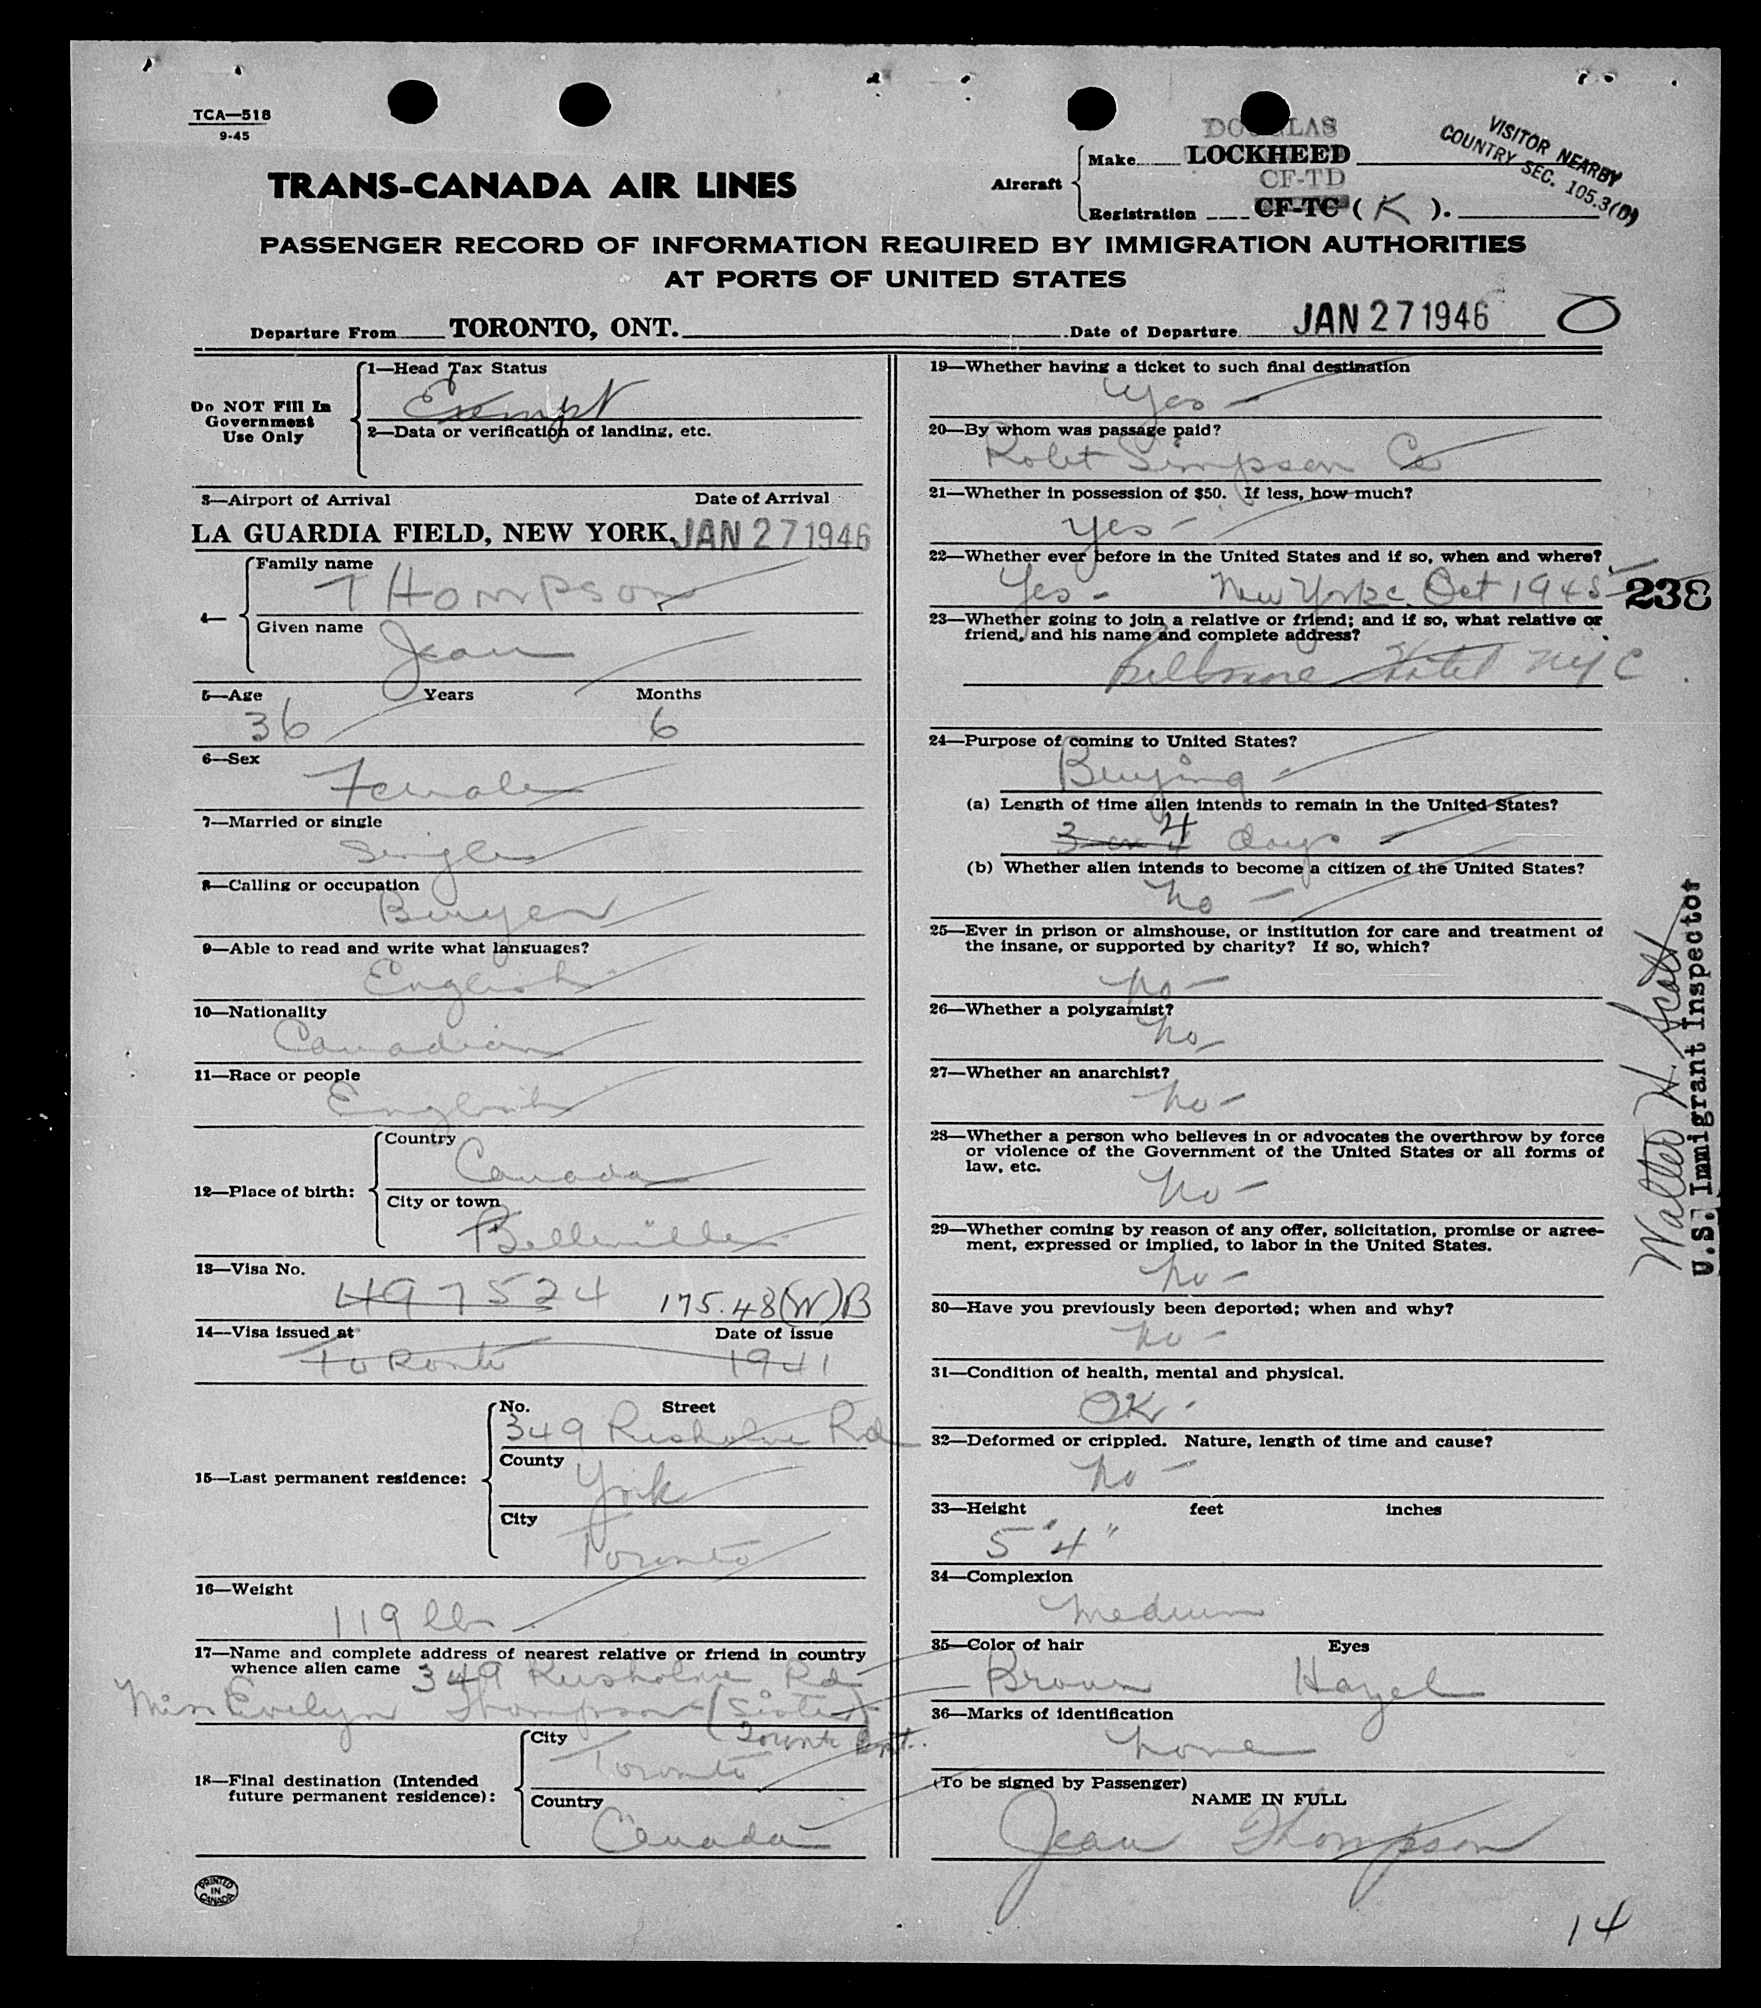 TCA—518
9-45
TRANS-CANADA AIR LINES
DOUGLAS
Aircraft
Make LOCKHEED
CF-TD
Registration CF-TC ( K ).
VISITOR NEARBY
COUNTRY SEC. 105.3(D)
PASSENGER RECORD OF INFORMATION REQUIRED BY IMMIGRATION AUTHORITIES
AT PORTS OF UNITED STATES
Departure From TORONTO, ONT. Date of Departure JAN 27 1946
Do NOT Fill In
Government
Use Only
1—Head Tax Status
Exempt
2—Data or verification of landing, etc.
3—Airport of Arrival Date of Arrival
LA GUARDIA FIELD, NEW YORK, JAN 27 1946
4—
Family name
THompson
Given name
Jean
5—Age Years Months
36 6
6—Sex
Female
7—Married or single
Single
8—Calling or occupation
Buyer
9—Able to read and write what languages?
English
10—Nationality
Canadian
11—Race or people
English
12—Place of birth:
Country
Canada
City or town
Belleville
13—Visa No.
497524 175.48(W)B
14—Visa issued at Date of issue
Toronto 1941
15—Last permanent residence:
No. Street
349 Rusholme Rd
County
York
City
Toronto
16—Weight
119 lb
17—Name and complete address of nearest relative or friend in country
whence alien came 349 Rusholme Rd
Miss Evelyn Thompson (Sister)
Toronto Ont.
18—Final destination (Intended
future permanent residence):
City
Toronto
Country
Canada
PRINTED
IN
CANADA
19—Whether having a ticket to such final destination
Yes -
20—By whom was passage paid?
Robt Simpson Co
21—Whether in possession of $50. If less, how much?
Yes -
22—Whether ever before in the United States and if so, when and where?
Yes - New York. Oct 1945
238
23—Whether going to join a relative or friend; and if so, what relative or
friend, and his name and complete address?
Biltmore Hotel NYC
24—Purpose of coming to United States?
Buying -
(a) Length of time alien intends to remain in the United States?
3 or 4 4 days -
(b) Whether alien intends to become a citizen of the United States?
No -
25—Ever in prison or almshouse, or institution for care and treatment of
the insane, or supported by charity? If so, which?
No -
26—Whether a polygamist?
No -
27—Whether an anarchist?
No -
28—Whether a person who believes in or advocates the overthrow by force
or violence of the Government of the United States or all forms of
law, etc.
No -
29—Whether coming by reason of any offer, solicitation, promise or agree-
ment, expressed or implied, to labor in the United States.
No -
30—Have you previously been deported; when and why?
No -
31—Condition of health, mental and physical.
OK -
32—Deformed or crippled. Nature, length of time and cause?
No -
33—Height feet inches
5" 4"
34—Complexion
Medium
35—Color of hair Eyes
Brown Hazel
36—Marks of identification
None
(To be signed by Passenger)
NAME IN FULL
Jean Thompson
Walter H. Scott
U.S. Immigrant Inspector
14